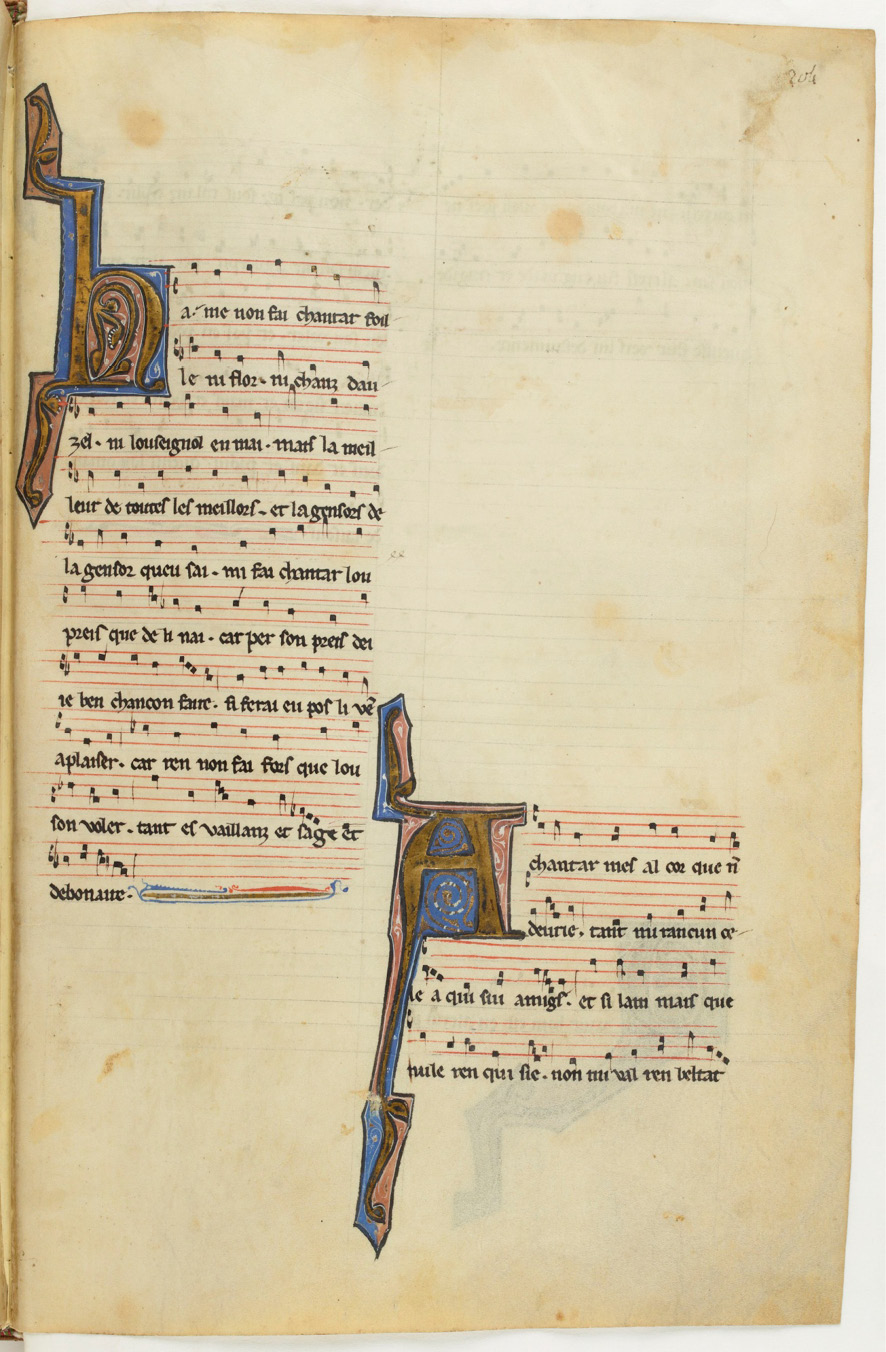 204
ha· me non fai chantar foil
le ni flor· ni chanz dau
zel· ni louseignol en mai· mais la meil
leur de toutes les meillors· et la gensors de
la gensor queu sai· mi fai chantar lou
preis que de li nai· car per son preis dei
ie ben chancon faire· si ferai eu pos li vē
a plaiser· car ren non fai fors que lou
son voler· tant es vaillanz et sage et
debonaire·
A chantar mes al cor que n̄
deurie· tant mi rancun ce
le a qui sui amigs· et si lam mais que
nule ren qui sie· non mi val ren beltat